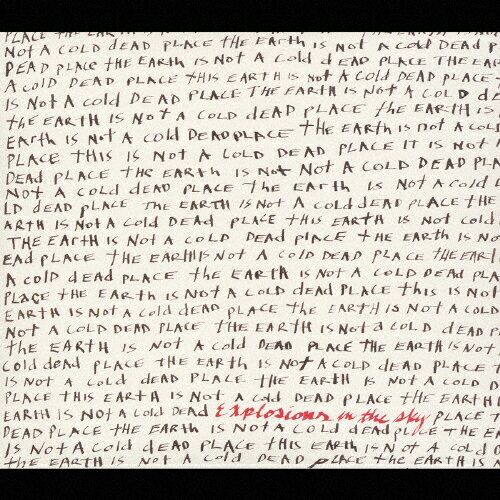 PLACE THE EARTH IS NOT A COLD DEAD PLACE THE EARTH IS NOT
NOT A COLD DEAD PLACE THE EARTH IS NOT A COLD DEAD P
DEAD PLACE THE EARTH IS NOT A COLD DEAD PLACE THE EAR
A COLD DEAD PLACE THIS EARTH IS NOT A COLD DEAD PLACE
IS NOT A COLD DEAD PLACE THE EARTH IS NOT A COLD DE
THE EARTH IS NOT A COLD DEAD PLACE THE EARTH IS
EARTH IS NOT A COLD DEAD PLACE THE EARTH IS NOT A COL
PLACE THIS IS NOT A COLD DEAD PLACE IT IS NOT
DEAD PLACE THE EARTH IS NOT NOT A COLD DEAD PLA
NOT A COLD DEAD PLACE THE EARTH IS NOT A COLD
LD DEAD PLACE THE EARTH IS NOT A COLD DEAD PLACE THE
ARTH IS NOT A COLD DEAD PLACE THIS EARTH IS NOT COLD
THE EARTH IS NOT A COLD DEAD PLACE THE EARTH IS NO
EAD PLACE THE EARTH IS NOT A COLD DEAD PLACE THE EART
A COLD DEAD PLACE THE EARTH IS NOT A COLD DEAD PLA
PLACE THE EARTH IS NOT A COLD DEAD PLACE THIS IS NOT
EARTH IS NOT A COLD DEAD PLACE THE EARTH IS NOT A COLD
NOT A COLD DEAD PLACE THE EARTH IS NOT A COLD DEAD P
THE EARTH IS NOT A COLD DEAD PLACE THE EARTH IS NOT
COLD DEAD PLACE THE EARTH IS NOT A COLD DEAD PLACE T
IS NOT A COLD DEAD PLACE THE EARTH IS NOT A COLD
PLACE THIS EARTH IS NOT A COLD DEAD PLACE THE EARTH
EARTH IS NOT A COLD DEAD Explosions in the sky PLACE T
DEAD PLACE THE EARTH IS NOT A COLD DEAD PLACE THE EA
IS NOT A COLD DEAD PLACE THIS EARTH IS NOT A COLD
THE EARTH IS NOT A COLD DEAD PLACE THE EARTH IS NOT